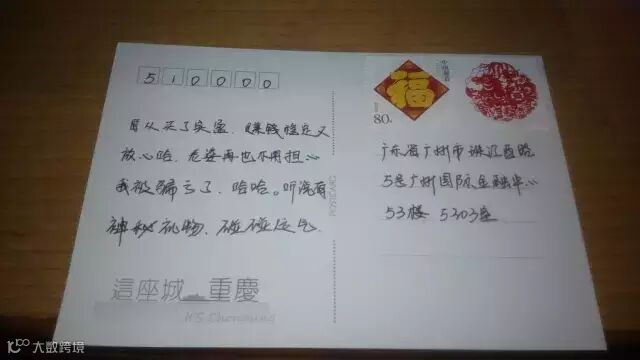 510000
自从买了安蜜,赚钱稳定又
放心哈,老婆再也不用担心
我被骗亏了,哈哈。听说有
神秘礼物,碰碰运气
這座城 重慶
POSTCARD
福
80分
中国邮政
广东省广州市珠江西路
5号广州国际金融中心
53楼 5303座
大数跨境